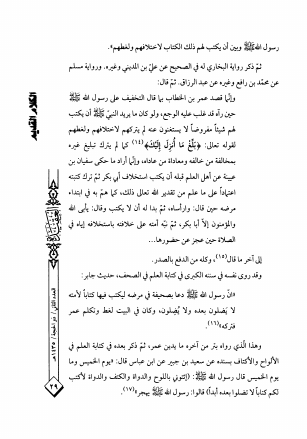 رسول اللهﷺ وبين أن يكتب لهم ذلك الكتاب لاختلافهم ولغطهم».
ثمّ ذكر رواية البخاري له في الصحيح عن عليّ بن المديني وغيره. ورواية مسلم
عن محمّد بن رافع وغيره عن عبد الرزاق. ثمّ قال:
وإنّما قصد عمر بن الخطاب بما قال التخفيف على رسول الله ﷺ
حين رآه قد غلب عليه الوجع، ولو كان ما يريد النبيّ ﷺ أن يكتب
لهم شيئاً مفروضاً لا يستغنون عنه لم يتركهم لاختلافهم ولغطهم
لقوله تعالى: ﴿بَلِّغْ مَا أُنزِلَ إِلَيْكَ﴾(١٤) كما لم يترك تبليغ غيره
بمخالفة من خالفه ومعاداة من عاداه، وإنّما أراد ما حكى سفيان بن
عيينة عن أهل العلم قبله أن يكتب استخلاف أبي بكر ثمّ ترك كتبته
اعتماداً على ما علم من تقدير الله تعالى ذلك، كما همّ به في ابتداء
مرضه حين قال: وارأساه، ثمّ بدا له أن لا يكتب وقال: يأبى الله
والمؤمنون إلّا أبا بكر، ثمّ نبّه أمته على خلافته باستخلافه إياه في
الصلاة حين عجز عن حضورها...
إلى آخر ما قال(١٥)، وكله من الدفع بالصدر.
وقد روى نفسه في سننه الكبرى في كتابة العلم في الصحف، حديث جابر:
«انّ رسول الله ﷺ دعا بصحيفة في مرضه ليكتب فيها كتاباً لأمته
لا يَضلون بعده ولا يُضلون، وكان في البيت لغط وتكلم عمر
فتركه»(١٦).
وهذا الّذي رواه بتر من آخره ما يدين عمر، ثمّ ذكر بعده في كتابة العلم في
الألواح والأكتاف بسنده عن سعيد بن جبير عن ابن عباس قال: «يوم الخميس وما
يوم الخميس قال رسول الله ﷺ: (إئتوني باللوح والدواة والكتف والدواة لأكتب
لكم كتاباً لا تضلوا بعده أبداً) قالوا: رسول الله ﷺ يهجر»(١٧).
العدد الثاني / ذو الحجة / ١٤٣٥هـ
٢٩